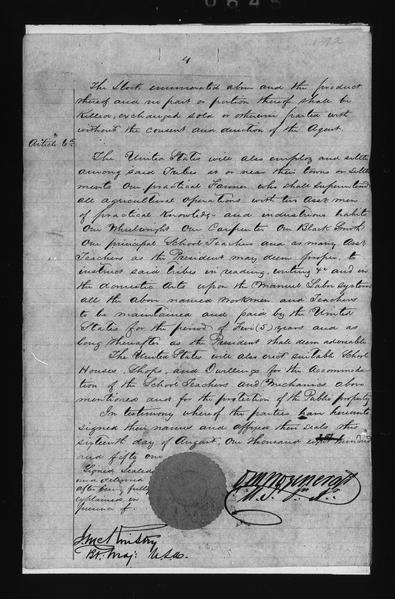 4
The Stock enumerated above and the product
thereof and no part or portion thereof shall be
Killed, exchanged sold or otherwise parted with
without the consent and direction of the Agent.
Article 6th
The United States will also employ and settle
among said Tribes at or near their towns or settle
ments One practical Farmer who shall superintend
all agricultural operations with two Asst men
of practical Knowledge and industrious habits
One Wheelwright One Carpenter One Black Smith
One principal School Teacher and as many Asst
Teachers as the President may deem proper to
instruct said tribes in reading, writing &c and in
the domestic Arts upon the Manual Labor System
all the above named Workmen and Teachers
to be maintained and paid by the United
States for the period of Five (5) years and as
long thereafter as the President shall deem advisable
The United States will also erect suitable School
Houses, Shops, and Dwellings for the Accommoda
tion of the School Teachers and Mechanics above
mentioned and for the protection of the Public property
In testimony whereof the parties have hereunto
signed their names and affixed their seals this
sixteenth day of August, One thousand eight hundred
and fifty one
Signed Sealed
and delivered
after being fully
explained in
presence of.
Bt. Maj. USA.